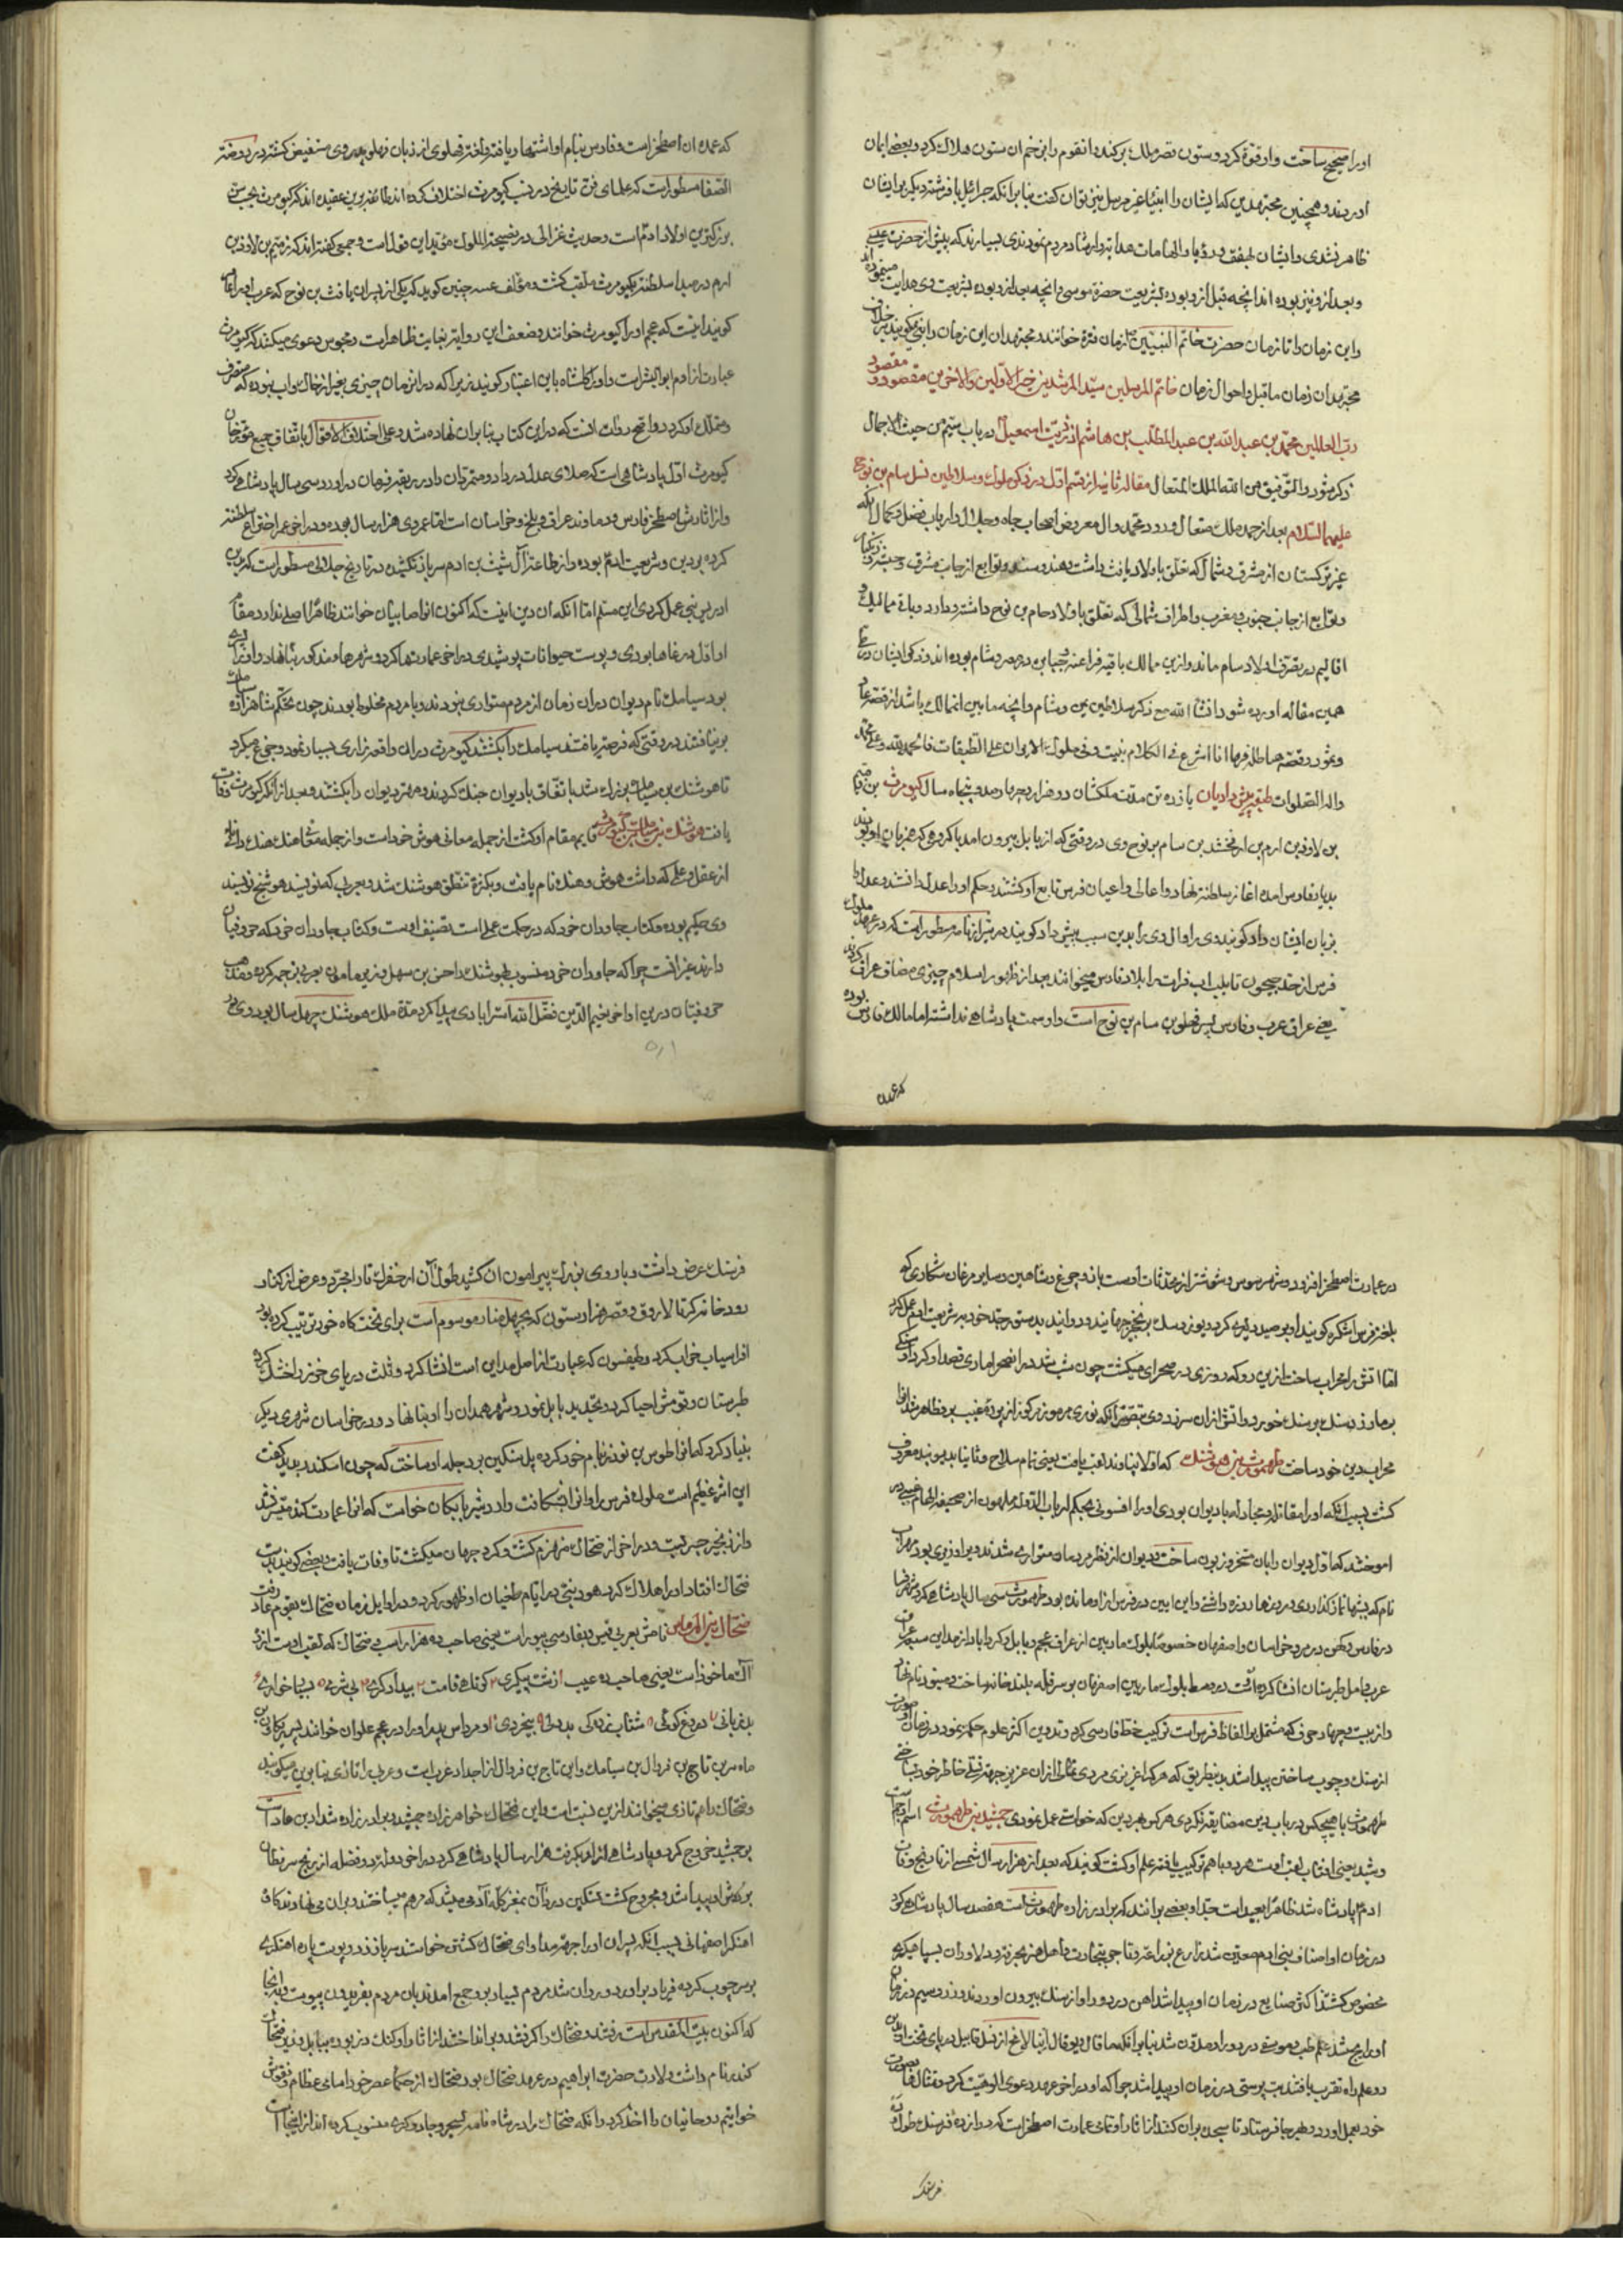 او را صحیح ساخت و ارفوة کرد و ستون قصر ملک برکند و انقوم را بزخم ان ستون هلاک کرد و بعضی ایمان
ظاهر نشدی و ایشان بودند بسیارند که پیش از حضرت عیسی
و بعد ازو نیز بوده اند انچه قبل ازو بوده بشریعت حضرة موسی و انچه بعد ازو بوده بشریعت وی هدایت
و این زمان را تا زمان حضرت خاتم النبیین زمان فترة خوانند و مجتهدان این زمان را نبی نگویند
مجتهدان زمان ماقبل و احوال زمان خاتم المرسلین سید المرشدین خیر الاولین والاخرین مقصود
رب العالمین محمد بن عبدالله بن عبدالمطلب بن هاشم از ذریت اسمعیل در باب سیم من حیث الاجمال
ذکر شود والتوفیق من الله الملک المتعال مقاله ثانیه از قسم اول در ذکر ملوک و سلاطین نسل سام بن نوح
علیهما السلام بعد از حمد ملک متعال و درود محمد و آل معروض اصحاب جاه و جلال و ارباب فضل و کمال آنکه
غیر ترکستان از مشرق و شمال که تعلق باولاد یافث داشت و هند و سند و توابع از جانب مشرق و حبشه و زنگبار
و توابع از جانب جنوب و مغرب و اطراف شمالی که تعلق باولاد حام بن نوح داشته و دارد و باقی ممالک و
اقالیم در تصرف اولاد سام ماند و ازین ممالک باقیه فراعنه و جبابره در مصر و شام بوده اند و ذکر ایشان در طی
همین مقاله اورده شود انشا الله مع ذکر سلاطین یمن و شام و انچه مابین انممالک باشد از قصه عاد
و ثمود و قصه هما طله فها انا اشرع فی الکلام بنیت و فی ملوک الایران علی الطبقات فالحمد لله و علی محمد
و اله الصلوات طبقه پیش دادیان یازده تن مدت ملکشان دو هزار و چهارصد و پنجاه سال کیومرث بن
بن لاوذ بن ارم بن ارفخشد بن سام بن نوح وی در وقتی که از بابل بیرون امد با گروهی که همزبان او بودند
بدیار فارس امده اغاز سلطنت نهاد و اعالی و اعیان فرس تابع او گشتند و حکم او را عدل دانستند و عدل را
بزبان ایشان داد گویند وی را و ال وی را بدین سبب پیش داد گویند در شیرازنامه مسطور است که در عهد ملوک
فرس از حد جیحون تا بلب اب فرات را بلاد فارس میخوانند بعد از ظهور اسلام چیزی مضاف عراق کردند
یعنی عراق عرب و فارس پسر فهلو بن سام بن نوح است و او سمت پادشاهی نداشته اما مالک فارس بوده
که عمده
که عمده ان اصطخر است و فارس بنام او اشتهار یافته و لغت فهلوی از زبان فهلو پدر وی مستفیض گشته در روضة
الصفا مسطور است که علمای فن تاریخ در نسب کیومرث اختلاف کرده اند طائفه برین عقیده اند که کیومرث بحسب سن
بزرکترین اولاد ادم است و حدیث غزالی در نصیحة الملوک مؤید این قول است و جمعی گفته اند که
ارم در مبدا سلطنت بکیومرث ملقب گشت و مؤلف چنین گوید که یکی از پسران یافث بن نوح که عرب او را
گویند انست که عجم او را کیومرث خوانند و ضعف این روایت بغایت ظاهر است و مجوس دعوی میکنند که کیومرث
عبارت از ادم ابوالبشر است و او را گلشاه باین اعتبار گویند زیرا که در انزمان چیزی بغیر از خاک و اب نبوده که متصرف
و متملک او گردد و اصح روات انست که در این کتاب بنا بران نهاده شد و علی اختلاف الاقوال باتفاق جمیع مورخان
کیومرث اول پادشاهی است که صلای عدل در داد و متمردان را در ربقه فرمان در اورد و سی سال پادشاهی کرد
و از اثارش اصطخر فارس و دماوند عراق و بلخ خراسان است اما عمر وی هزار سال بوده و در اخر عمر اختراع سلطنة
کرده بر دین و شریعت ادم بوده و از طاعت آل شیث بن ادم سر باز نکشیده در تاریخ جلالی مسطور است که بدین
ادریس نبی عمل کردی این مسلم اما انکه ان دین اینست که اکنون انرا صابیان خوانند ظاهرا اصلی ندارد مقام
او اول در غارها بودی و پوست حیوانات پوشیدی در اخر عمارتها کرد و شهرها مذکور بنا نهاد و او را
بود سیامک نام دیوان دران زمان از مردم متواری نبودند و با مردم مخلوط بودند چون تحکم شاهزاده
بر نیافتند در وقتی که فرصت یافتند سیامک را بکشتند کیومرث دران واقعه زاری بسیار نمود و جزع میکرد
تا هوشنک بن سیامک بزرک شد باتفاق با دیوان جنک کردند و مهتر دیوان را بکشتند و بعد از انکه کیومرث وفات
یافت هوشنک بن سیامک بن کیومرث قایم مقام او گشت از جمله معانی هوش خرد است و از جمله معانی هنک دانائی
از عقل و علمی که داشت هوش و هنک نام یافت و بکثرة تنطق هوشنک شد و بعربی که نویسند هوشنج نویسند
وی حکیم بوده و کتاب جاودان خرد که در حکمت عملی است تصنیف اوست و کتاب جاودان خرد که حروفیان
دارند غیر انست چرا که جاودان خرد منسوب بهوشنک را حسن بن سهل وزیر مامون بعربی ترجمه کرده و مذهب
حروفیان در این اواخر نعیم الدین فضل الله استرابادی پیدا کرد مدة ملک هوشنک چهل سال بود وی در
در عمارت اصطخر افزود و شهر سوس و شوشتر از محدثات اوست باز و چرغ و شاهین و سایر مرغان شکاری که
بلغت فرس اشکره گویند او بصید دلیر کرد و یوز و سک بر نخچیر جهانید و دوانید بدستور جد خود بر شریعت ادم عمل کرد
اما اتش را محراب ساخت ازین رو که روزی در صحرای میگشت چون شب شد در انصحرا ماری قصد او کرد او سنگی
بر مار زد سنک بر سنک خورد و اتش ازان سر زد وی بتصور انکه نوری مرموز مرکوز از پرده غیب برو ظاهر شد انرا
محراب دین خود ساخت طهمورث بن هوشنک که اولا بناوند لقب یافت یعنی تمام سلاح و ثانیا بدیوبند معروف
گشت بسبب انکه او را مقاتله و مجادله با دیوان بودی
اموختند که اول دیوان را بان مسخر و زبون ساخت و دیوان از نظر مردمان متواری شدند و او را وزیری بود
نام که شبها نماز گذاردی و روزها روزه داشتی و این ایین در فرس از او مانده بود طهمورث سی سال پادشاهی کرد
در فارس و کهن دز مرو خراسان و اصفهان
عرب و امل طبرستان انشا کرده اوست
دارنیست و چهار حرف که مشتمل بر الفاظ فرس است ترکیب خط فارسی کرد و تدوین اکثر علوم حکمیه نمود و در زمان او صورت
از سنک و چوب ساختن پیدا شد بدینطریق که هر کرا عزیزی مردی تمثالی ازان عزیز جهت تسلی خاطر خود ساختی
طهمورث با هیچکس در باب دین مضایقه نکردی هر کس هر دین که خواستی عمل نمودی جمشید بن طهمورث اسم او جم است
و شید یعنی افتاب لقب اوست هر دو با هم ترکیب یافته علم او گشت گویند که بعد از هزار سال شمسی از تاریخ وفات
ادم پادشاه شد ظاهرا بعید است جدا و بعضی برانند که برادر زاده طهمورث است هفصد سال پادشاهی کرد
در زمان او اصناف بنی ادم معین شد زارع بزراعت و تاجر بتجارت و اهل هنر بحرفت و دلاوران بسپاهیگری
مخصوص گشتند اکثر صنایع در زمان او پیدا شد اهن در دور او از سنک بیرون اوردند و زر و سیم در زمان
او رایج شد علم طب و موسیقی در دور او مدون شد
دو علم راه تقرب یافتند بت پرستی در زمان او پیدا شد چرا که او در اخر عهد دعوی الوهیت کرد و تمثالها بصورت
خود بعمل اورد و بهر جا فرستاد تا سجده بران کنند از اثار او تمامی عمارت اصطخر است که دوازده فرسنک طول و ده
فرسنک
فرسنک عرض داشت و باروی بزرک پیرامون ان کشید طول ان از خفرک تا رامجرد و عرض از کنار
رود
افراسیاب خراب کرد و طیسفون که عبارت از اصل مداین است انشا کرد و ثلث دریای خزر داخل کرد
طبرستان و تومش احیا کرد و تجدید بابل نمود و شهر همدان را او بنا نهاد و در خراسان شهری دیگر
بنیاد کرد که انرا طوس بن نوذر بنام خود کرده پل سنگین بر دجله او ساخت که چون اسکندر بدید گفت
این اثر عظیم است ملوک فرس را و انرا اردشیر بابکان خواست که انرا عمارت کند میسر نشد
و از زنجیر جسر بست و در اخر از ضحاک منهزم گشت و گرد جهان میگشت تا وفات یافت و بعضی گویند بدست
ضحاک افتاد او را هلاک کرد هود نبی در ایام طغیان او ظهور کرد و در اوایل زمان ضحاک بقوم عاد رفت
ضحاک بن المرداس نامش بعربی قیس و بفارسی بیوراسب یعنی صاحب ده هزار اسب و ضحاک که لقب اوست از ده
آک ماخوذ است یعنی صاحب ده عیب ۱ زشت پیکری ۲ کوتاهی قامت ۳ بیدادگری ۴ بی شرمی ۵ بسیار خواری ۶
بدزبانی ۷ دروغ گوئی ۸ شتاب زدگی بددلی ۹ بیخردی ۱۰ و مرداس پدر او را در عجم علوان خوانند
ماه سر بن تاج بن فروال بن سیامک و این تاج بن فروال از اجداد عرب است و عرب را تازی بنابرین میگویند
و ضحاک را هم تازی میخوانند ازین نسبت است و این ضحاک خواهر زاده جمشید و برادر زاده شداد بن عاد است
بر جمشید خروج کرد و پادشاهی از او بگرفت هزار سال پادشاهی کرد در اخر دولت
بر کتفش او پیدا شد و مجروح گشت تسکین درد ان بمغز کله آدمی میشد که مرهم میساختند و بران می نهادند کاوه
اهنگر اصفهانی بسبب انکه پسران او را جهت مداوای ضحاک کشتن خواستند سر باز زد و پوست پاره اهنگری
بر سر چوب کرده فریاد بران دوران شد مردم بسیار برو جمع امدند بان مردم بفریدون پیوست و بدانجا
که اکنون بیت المقدس است رفتند و ضحاک را گرفتند و بر انداختند از اثار او کنک دز بوده ببابل و وزیر ضحاک
کندر نام داشت ولادت حضرت ابراهیم در عهد ضحاک بود ضحاک از حکما عصر خود اسامی عظام و نقوش
خواتیم روحانیان را اخذ کرد و انکه ضحاک را در شاه نامه بسحر و جادوگری منسوب کرده اند از اینجا است